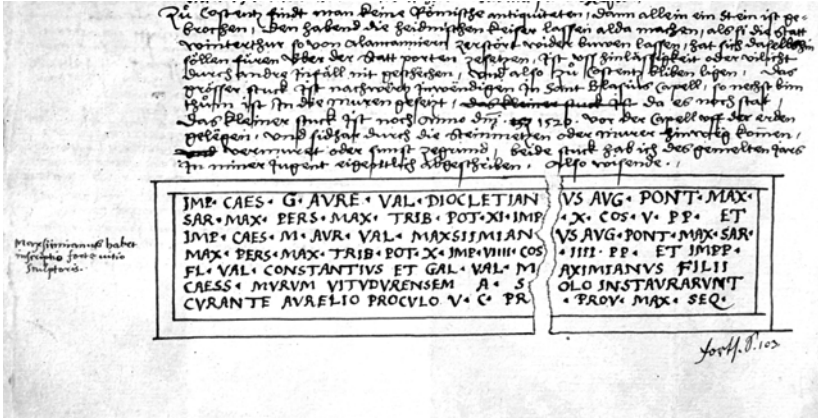 Zů Costentz findt man keine Römische antiquiteten, dann allein ein Stein ist ge-
brochen, den habend die heidnischen keiser lassen alda machen, als si die Statt
winterthur so von Alamanniern zerstört wider buwen lassen, hat sich daselbsthin
söllen füren über der Statt porten zesetzen, Ist uss hinlässigkeit oder vilicht
durch andre Infäll nit geschehen, und also zů Costentz bliben ligen, Das
grösser stuck Ist nachwerts Inwendigen In Sant Blasius Capell, so nechst bim
thurn ist In die muren gesetzt, das kleiner stuck ist da es noch stat,
Das kleiner stuck Ist noch Anno dni 1520 vor der Capell uff der erden
gelegen, und sidhar durch die Steinmetzen oder murer hinweg komen,
und vermurt oder sunst zegrund, beide stuck hab ich des gemelten Jars
In miner Jugent eigentlich abgeschriben, Also wisende.
IMP• CAES• G• AVRE• VAL• DIOCLETIAN VS AVG• PONT• MAX•
SAR• MAX• PERS• MAX• TRIB• POT• XI• IMP •X• COS• V• PP• ET
IMP• CAES• M• AVR• VAL• MAXSIIMIAN VS AVG• PONT• MAX• SAR•
MAX• PERS• MAX• TRIB• POT• X• IMP• VIIII• COS •IIII• PP• ET IMPP•
FL• VAL• CONSTANTIVS ET GAL• VAL• M AXIMIANVS FILII
CAESS• MVRVM VITVDVRENSEM A• S OLO INSTAVRARVNT
CVRANTE AVRELIO PROCVLO V• C• PR •PROV• MAX• SEQ•
Maxsiimianus habet
inscriptio forte vitio
sculptoris.
103